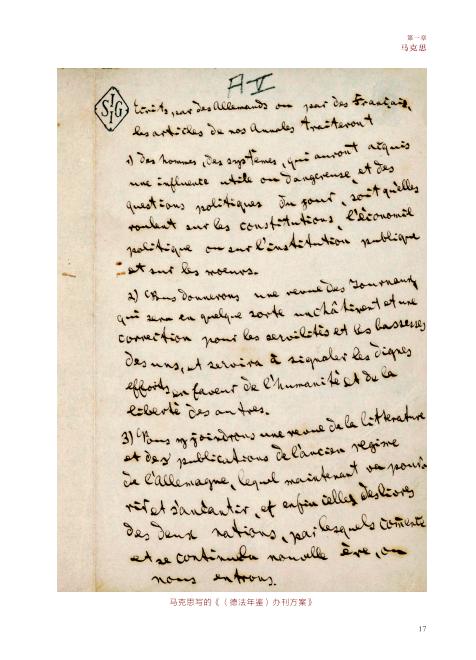 第一章
马克思
A V
SIGI
Ecrits par des Allemands ou par des Français,
les articles de nos Annales traiteront
1) Des hommes, des systèmes, qui auront acquis
une influence utile ou dangereuse, et des
questions politiques du jour, soit qu'elles
roulent sur les constitutions, l'économie
politique ou sur l'institution publique
et sur les moeurs.
2) Nous donnerons une revue des Journaux,
qui sera en quelque sorte un châtiment et une
correction pour les servilités et les bassesses
des uns, et servira à signaler les dignes
efforts en faveur de l'humanité et de la
liberté des autres.
3) Nous y joindrons une revue de la littérature
et des publications de l'ancien régime
de l'Allemagne, lequel maintenant va pourir
et s'anéantir, et enfin celle des livres
des deux nations, par lesquels comence
et se continuera nouvelle ère, ou
nous entrons.
马克思写的《〈德法年鉴〉办刊方案》
17